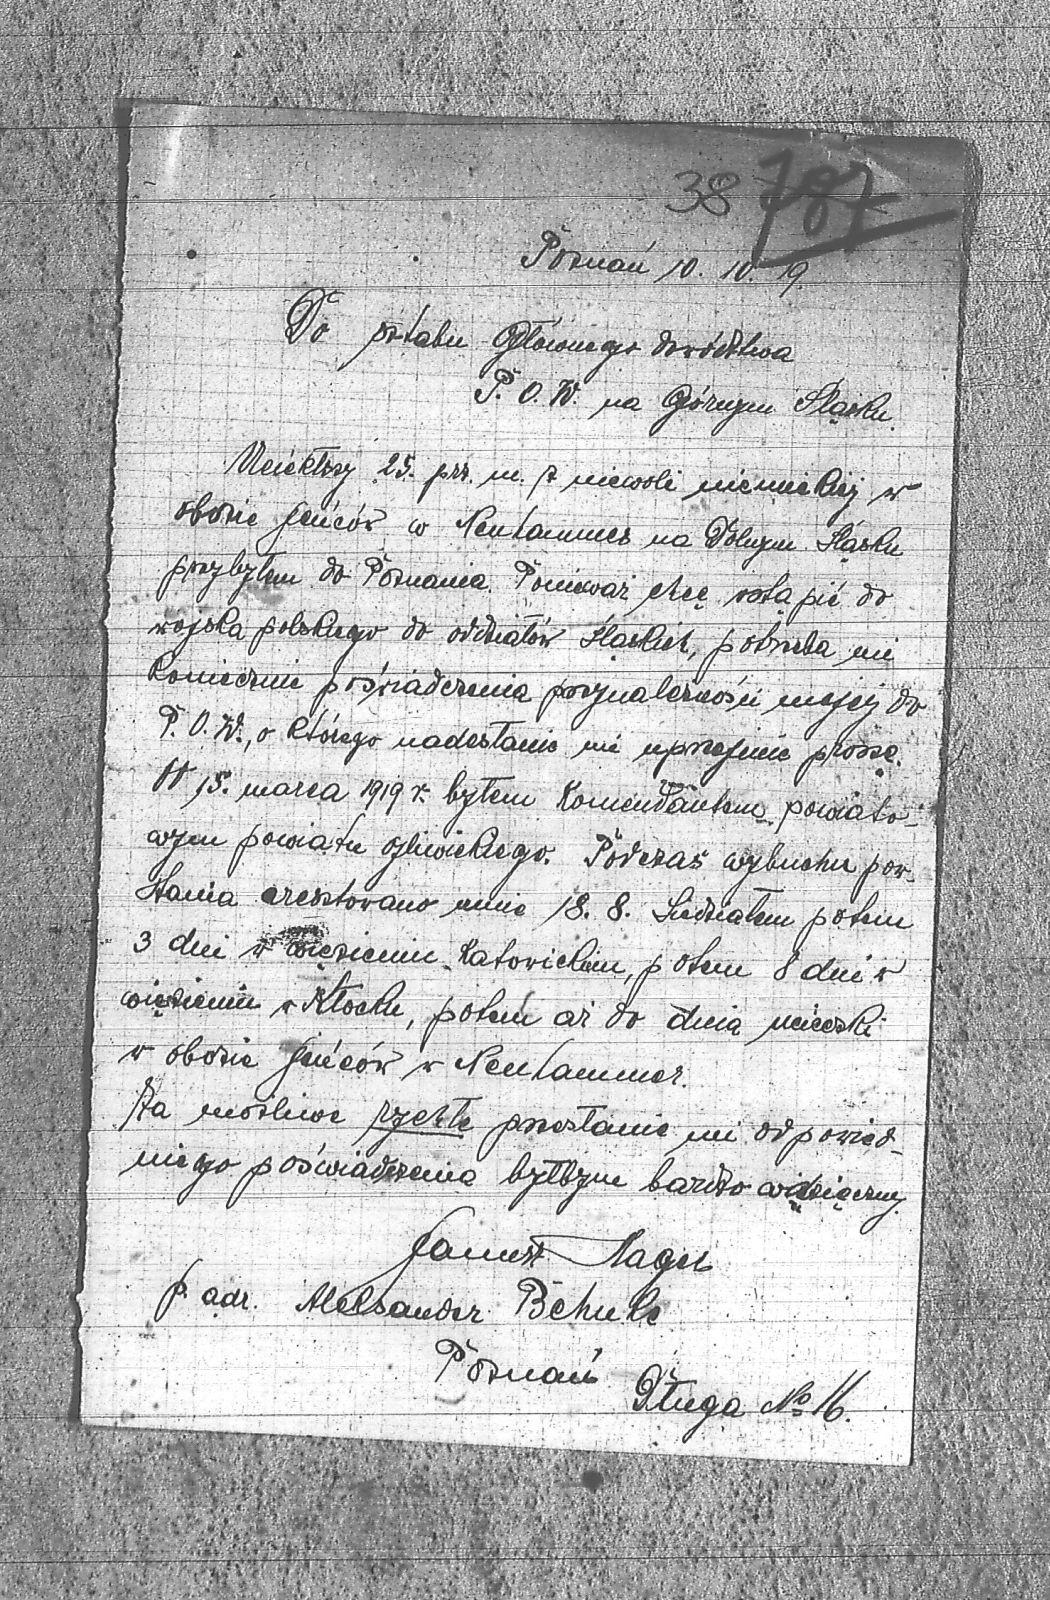 38 787
Poznań 10. 10. 19.
Do sztabu Głównego dowództwa
P. O. W. na Górnym Śląsku.
Uciekłszy 25. prz. m. z niewoli niemieckiej w
obozie jeńców w Neuhammer na Dolnym Śląsku
przybyłem do Poznania. Ponieważ chcę wstąpić do
wojska polskiego do oddziałów Śląskich, potrzeba mi
koniecznie poświadczenia przynależności mojej do
P. O. W., o którego nadesłanie mi uprzejmie proszę.
Od 15. marca 1919 r. byłem Komendantem powiato-
wym powiatu gliwickiego. Podczas wybuchu pow-
stania aresztowano mnie 18. 8. Siedziałem potem
3 dni w więzieniu Katowickim, potem 8 dni w
więzieniu w Kłocku, potem aż do dnia ucieczki
w obozie jeńców w Neuhammer.
Za możliwe rychłe przesłanie mi odpowied-
niego poświadczenia byłbym bardzo wdzięczny.
Nagel
p. adr. Aleksander Behnke
Poznań
Długa No 16.